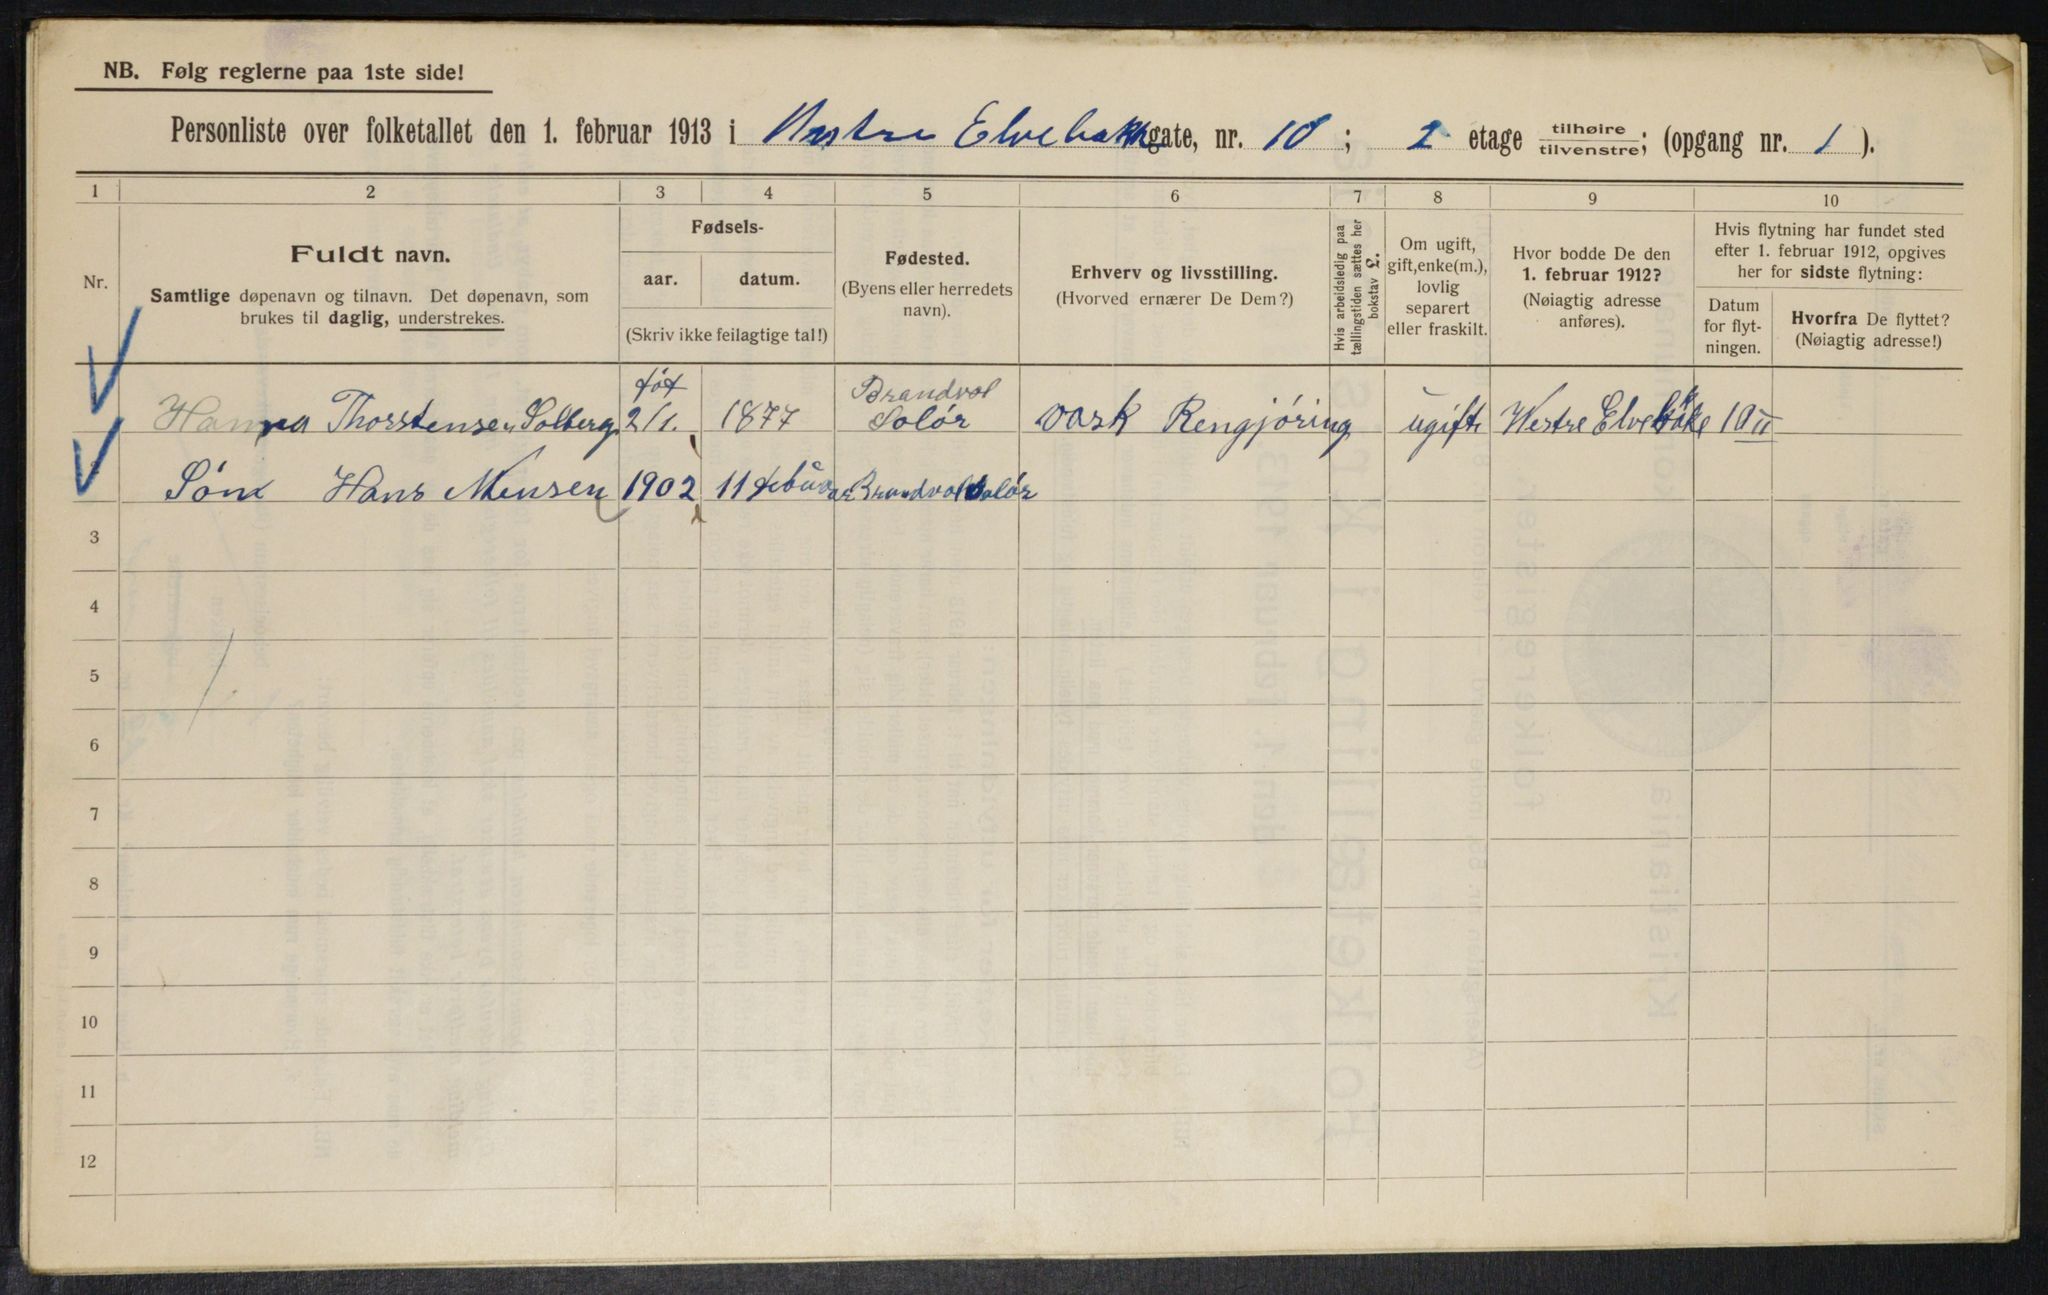 NB. Følg reglerne paa 1ste side!
Personliste over folketallet den 1. februar 1913 i Vestre Elvebakkgate, nr. 10; 2 etage tilhøire/tilvenstre; (opgang nr. 1).
1 2 3 4 5 6 7 8 9 10
Nr.
Fuldt navn.
Samtlige døpenavn og tilnavn. Det døpenavn, som
brukes til daglig, understrekes.
Fødsels-
aar. datum.
(Skriv ikke feilagtige tal!)
Fødested.
(Byens eller herredets
navn).
Erhverv og livsstilling.
(Hvorved ernærer De Dem?)
Hvis arbeidsledig paa
tællingstiden sættes her
bokstav L.
Om ugift,
gift, enke(m.),
lovlig
separert
eller fraskilt.
Hvor bodde De den
1. februar 1912?
(Nøiagtig adresse
anføres).
Hvis flytning har fundet sted
efter 1. februar 1912, opgives
her for sidste flytning:
Datum
for flyt-
ningen.
Hvorfra De flyttet?
(Nøiagtig adresse!)
føt Brandvol
Hanna Thorstensen Solberg 2/1. 1877 Solør vask Rengjøring ugift Westre Elvebake 10 II
Sønn Hans Nensen 1902 11 februar Brandvol Solør
3
4
5
6
7
8
9
10
11
12